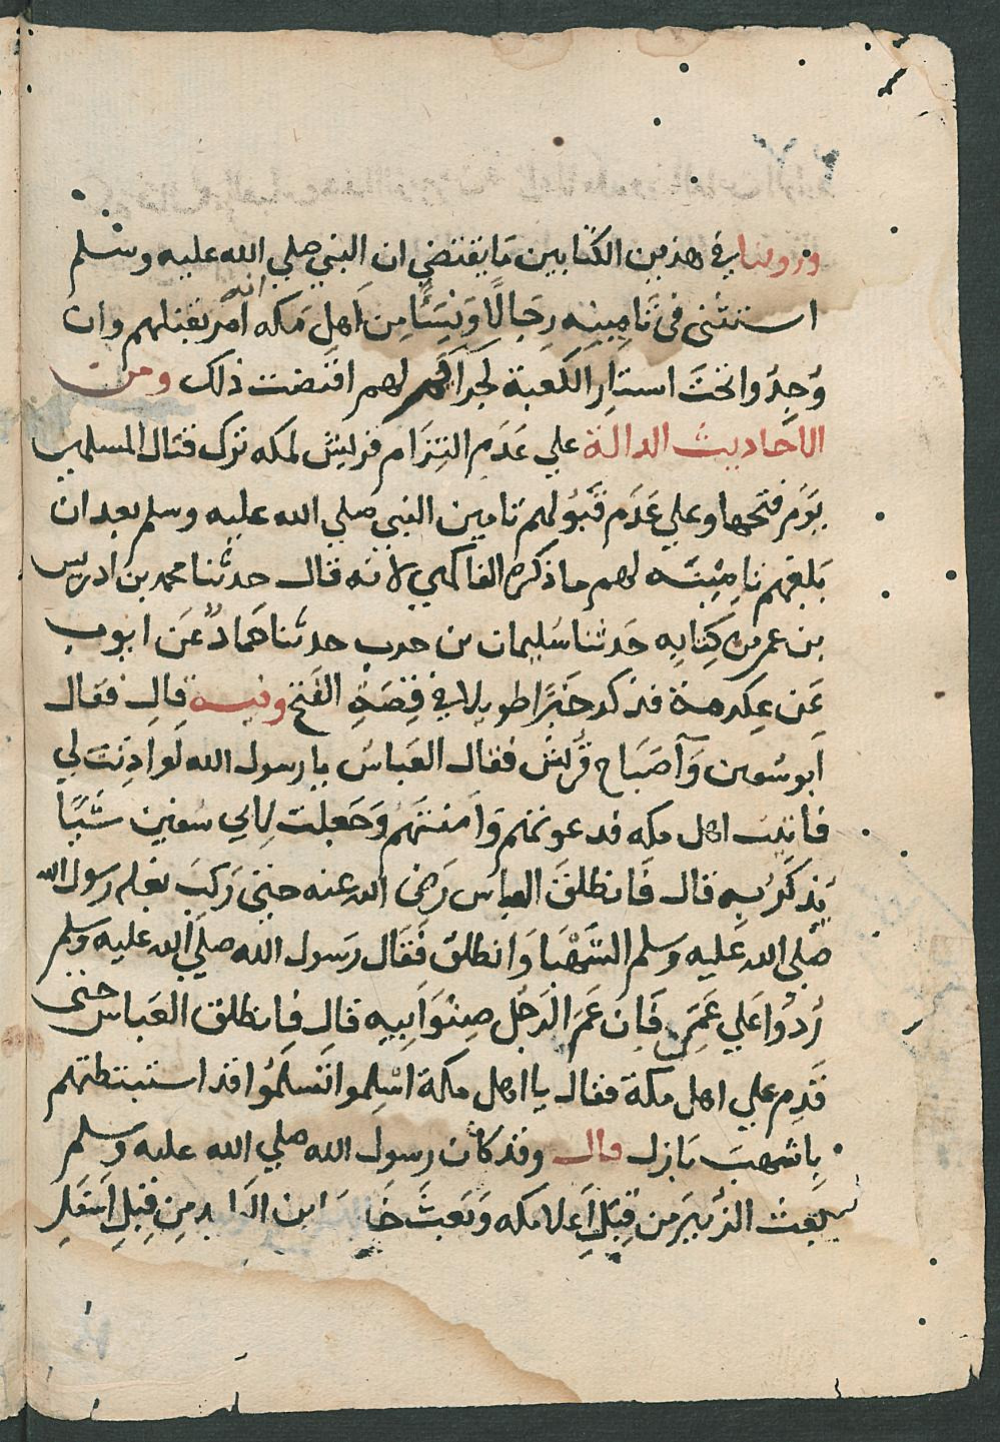 وروينا في هذين الكتابين ما يقتضي ان النبي صلي الله عليه وسلم
استثنى في تامينه رجالا ونسئا من اهل مكه انه امر بقتلهم وان
وجدوا تحت استار الكعبة لجرائم لهم اقتضت ذلك ومن
الاحاديث الدالة علي عدم التزام قريش لمكه ترك قتال المسلمين
يوم فتحها وعلي عدم قبولهم تامين النبي صلي الله عليه وسلم بعد ان
بلغهم تامينه لهم ما ذكره الفاكهي لانه قال حدثنا محمد بن ادريس
بن عمر من كتابه حدثنا سليمان بن حرب حدثنا حماد عن ايوب
عن عكرمة فذكر خبرا طويلا في قصة الفتح وفيه قال فقال
ابو سفين وآصباح قريش فقال العباس يا رسول الله لو اذنت لي
فاتيت اهل مكه فدعوتهم وامنتهم وجعلت لابي سفين شيا
يذكر به قال فانطلق العباس رضى الله عنه حتى ركب بغله رسول الله
صلى الله عليه وسلم الشهبا وانطلق فقال رسول الله صلي الله عليه وسلم
ردوا علي عمي فان عم الرجل صنو ابيه قال فانطلق العباس حتى
قدم علي اهل مكة فقال يا اهل مكة اسلموا تسلموا قد استبطنتم
باشهب بازل قال وقد كان رسول الله صلي الله عليه وسلم
بعث الزبير من قبل اعلا مكه وبعث خا ابن الوليد من قبل اسفل